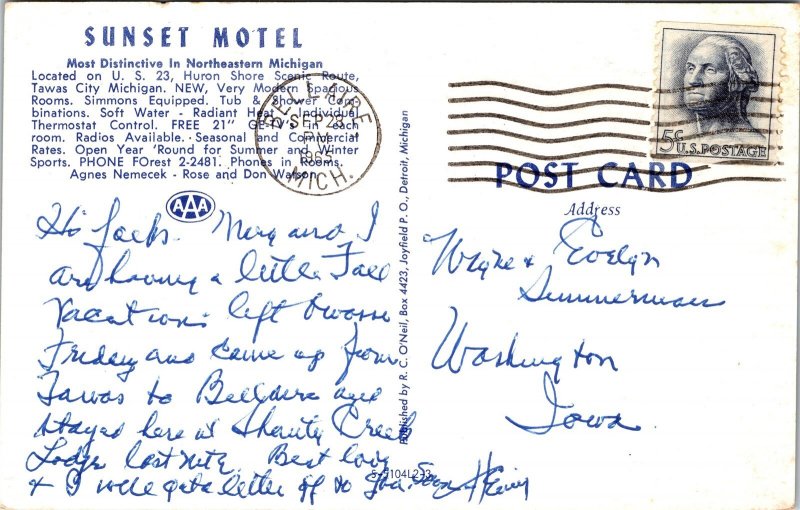 SUNSET MOTEL
Most Distinctive In Northeastern Michigan
Located on U. S. 23, Huron Shore Scenic Route,
Tawas City Michigan. NEW, Very Modern Spacious
Rooms. Simmons Equipped. Tub & Shower Com-
binations. Soft Water - Radiant Heat - Individual
Thermostat Control. FREE 21" GE TV's in each
room. Radios Available. Seasonal and Commercial
Rates. Open Year 'Round for Summer and Winter
Sports. PHONE FOrest 2-2481. Phones in Rooms.
Agnes Nemecek - Rose and Don Watson
AAA
BELLAIRE
SEP 28
PM
1965
MICH.
5c
U.S. POSTAGE
POST CARD
Address
Hi Folks. Mary and I
are having a little Fall
Vacation. left Owosso
Friday and came up from
Tawas to Bellaire and
stayed here at Shanty Creek
Lodge last nite. Best love
& I will get a letter off to you. Soon
Wayne & Evelyn
Summerman
Washington
Iowa
Published by R. C. O'Neil, Box 4423, Joyfield P. O., Detroit, Michigan
S-5104L2-3